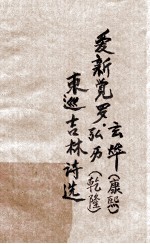 爱新觉罗·玄烨(康熙)
弘历(乾隆)
东巡吉林诗选